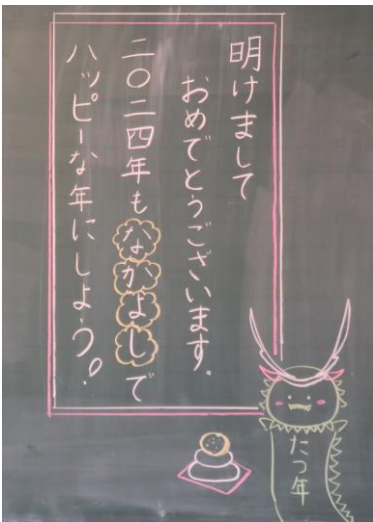 明けまして
おめでとうございます。
二〇二四年もなかよしで
ハッピーな年にしよう!
たつ年